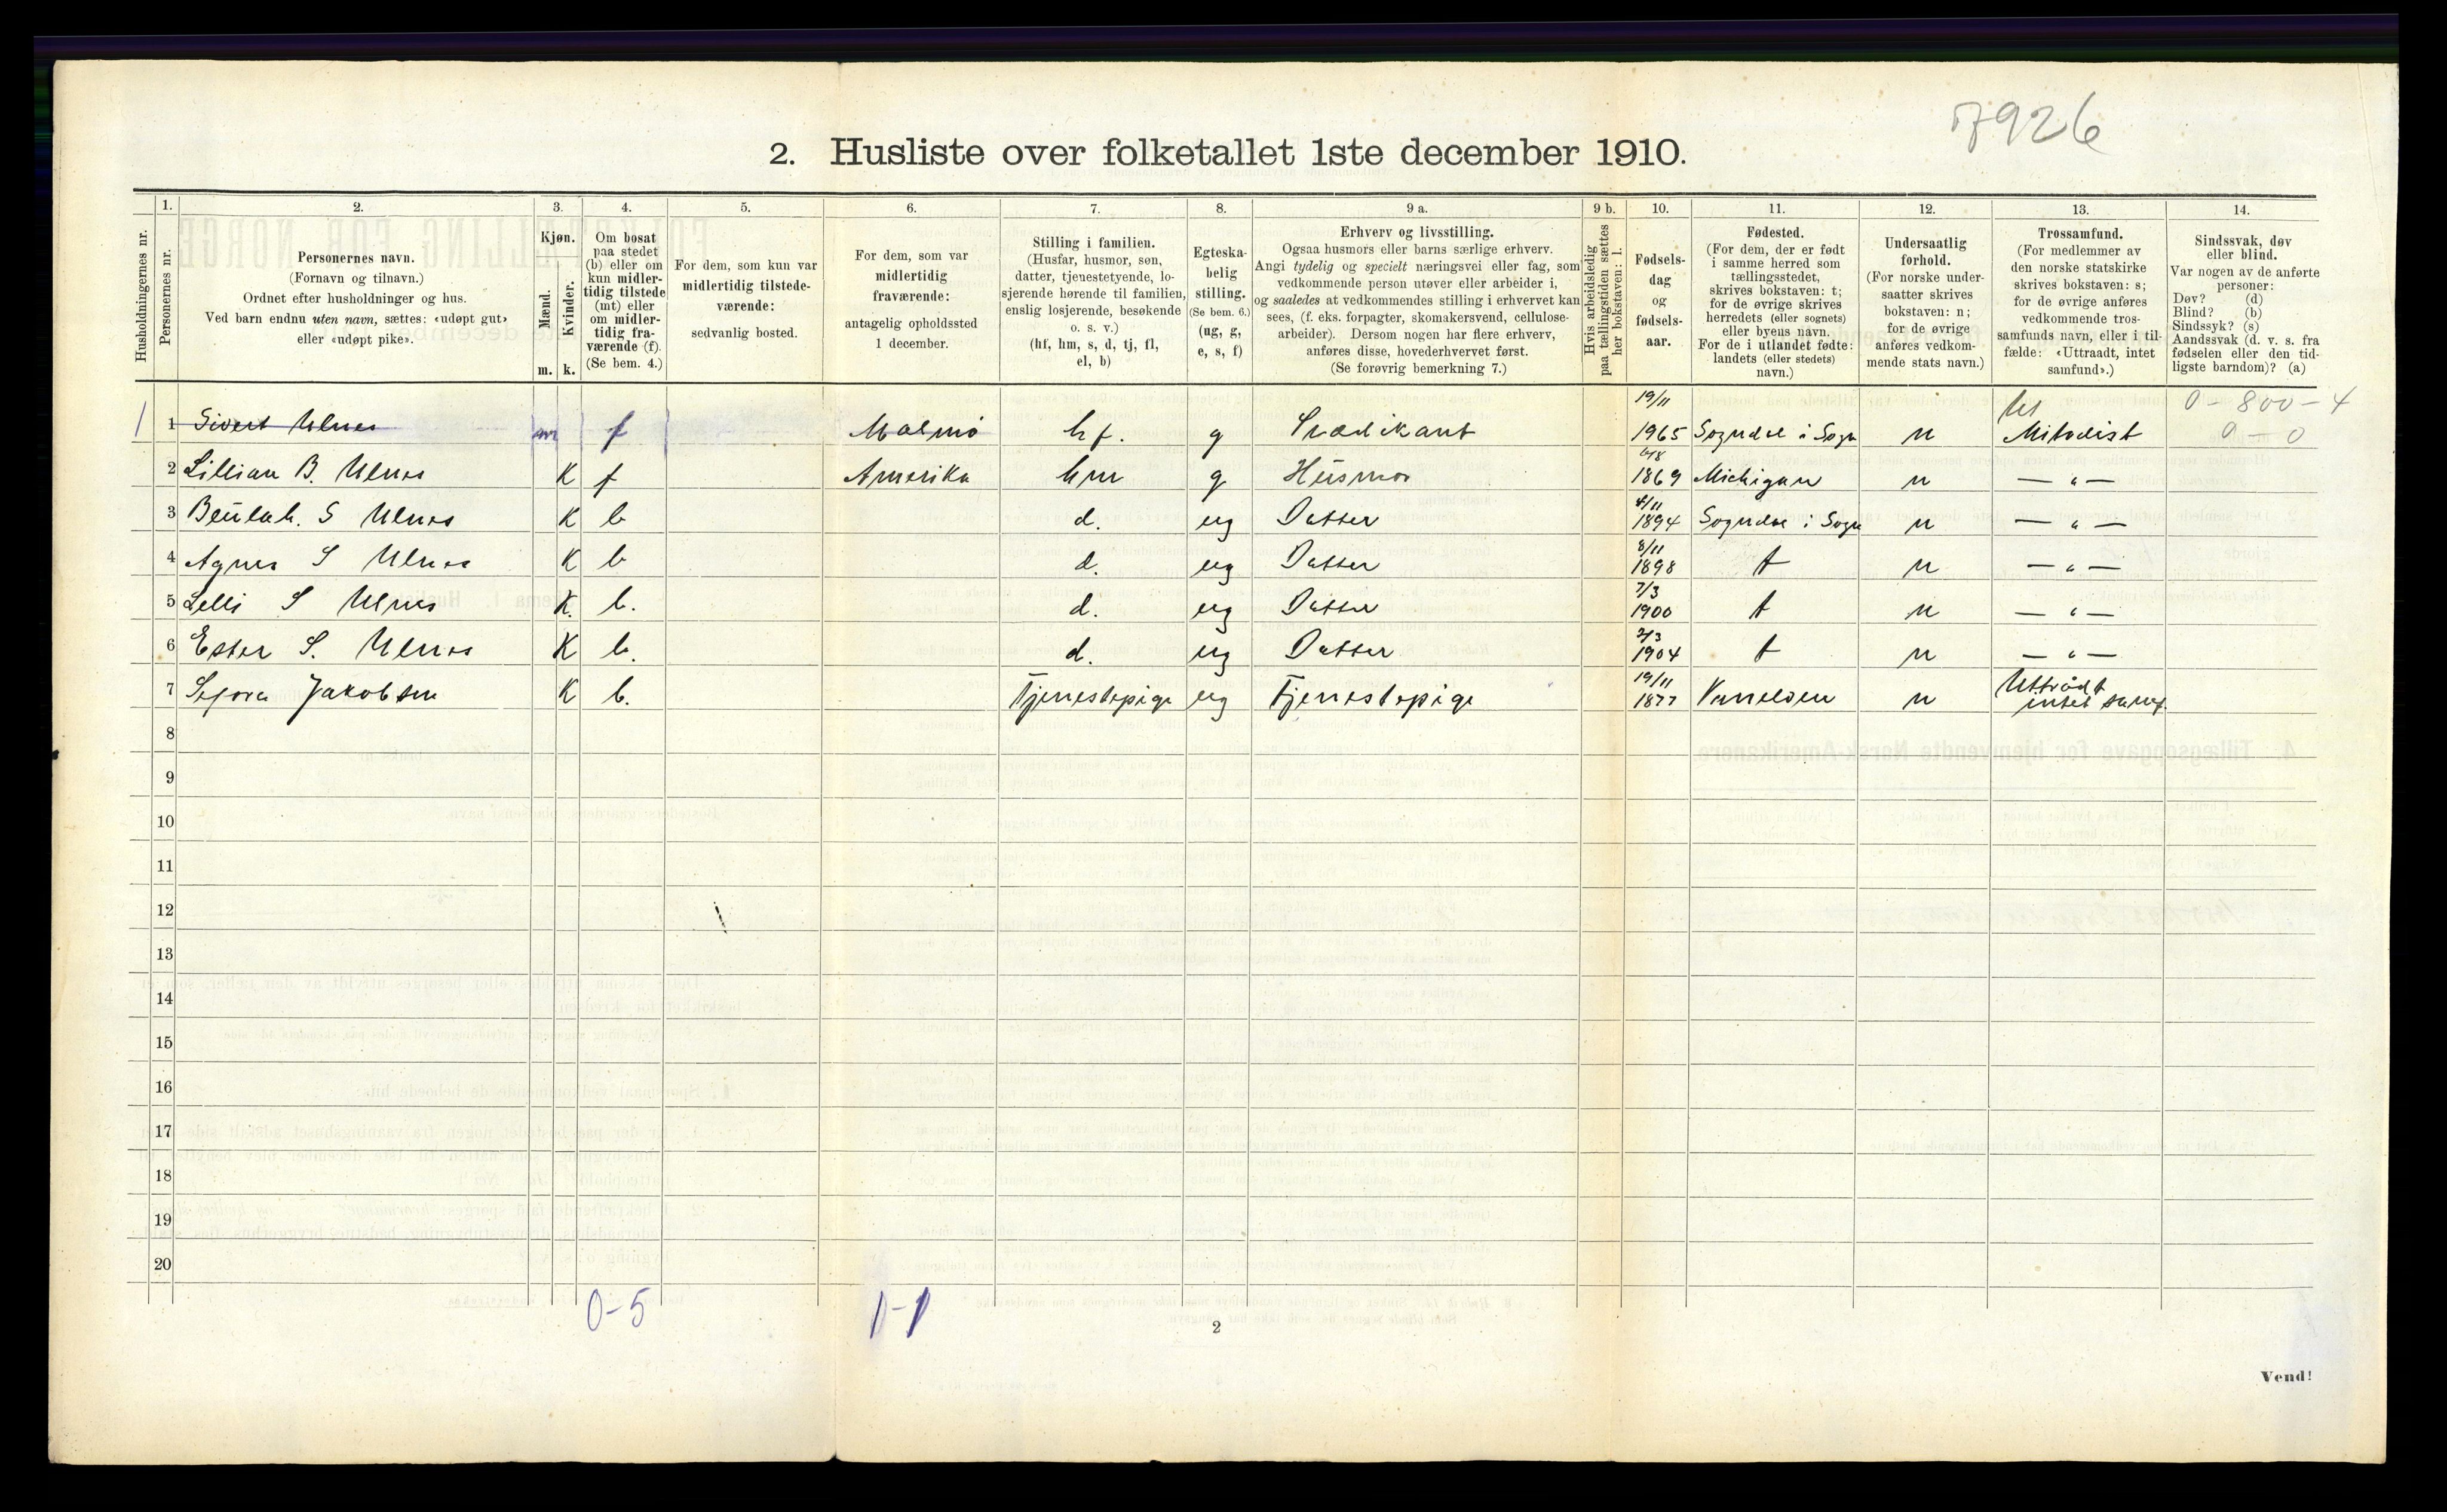 7926
2. Husliste over folketallet 1ste december 1910.
Husholdningernes nr.
1.
Personernes nr.
2.
Personernes navn.
(Fornavn og tilnavn.)
Ordnet efter husholdninger og hus.
Ved barn endnu uten navn, sættes: «udøpt gut»
eller «udøpt pike».
3.
Kjøn.
Mænd.
Kvinder.
m. k.
4.
Om bosat
paa stedet
(b) eller om
kun midler-
tidig tilstede
(mt) eller
om midler-
tidig fra-
værende (f).
(Se bem. 4.)
5.
For dem, som kun var
midlertidig tilstede-
værende:
sedvanlig bosted.
6.
For dem, som var
midlertidig
fraværende:
antagelig opholdssted
1 december.
7.
Stilling i familien.
(Husfar, husmor, søn,
datter, tjenestetyende, lo-
sjerende hørende til familien,
enslig losjerende, besøkende
o. s. v.)
(hf, hm, s, d, tj, fl,
el, b)
8.
Egteska-
belig
stilling.
(Se bem. 6.)
(ug, g,
e, s, f)
9 a.
Erhverv og livsstilling.
Ogsaa husmors eller barns særlige erhverv.
Angi tydelig og specielt næringsvei eller fag, som
vedkommende person utøver eller arbeider i,
og saaledes at vedkommendes stilling i erhvervet kan
sees, (f. eks. forpagter, skomakersvend, cellulose-
arbeider). Dersom nogen har flere erhverv,
anføres disse, hovederhvervet først.
(Se forøvrig bemerkning 7.)
9 b.
Hvis arbeidsledig
paa tællingstiden sættes
her bokstaven: l.
10.
Fødsels-
dag
og
fødsels-
aar.
11.
Fødested.
(For dem, der er født
i samme herred som
tællingsstedet,
skrives bokstaven: t;
for de øvrige skrives
herredets (eller sognets)
eller byens navn.
For de i utlandet fødte:
landets (eller stedets)
navn.)
12.
Undersaatlig
forhold.
(For norske under-
saatter skrives
bokstaven: n;
for de øvrige
anføres vedkom-
mende stats navn.)
13.
Trossamfund.
(For medlemmer av
den norske statskirke
skrives bokstaven: s;
for de øvrige anføres
vedkommende tros-
samfunds navn, eller i til-
fælde: «Uttraadt, intet
samfund».)
14.
Sindssvak, døv
eller blind.
Var nogen av de anførte
personer:
Døv? (d)
Blind? (b)
Sindssyk? (s)
Aandssvak (d. v. s. fra
fødselen eller den tid-
ligste barndom)? (a)
1 1 Sivert Ulnes m f Malmö hf. g Prædikant 19/11 1965 Sogndal i Sogn n Metodist 0-800-4 0-0
2 Lillian B. Ulnes K f Amerika hm g Husmor 1869 Michigan n — " —
3 Beulah. S Ulnes K b d. ug Datter 4/11 1894 Sogndal i Sogn n — " —
4 Agnes S Ulnes K b d. ug Datter 8/11 1898 t n — " —
5 Lelli S Ulnes K. b. d. ug Datter 7/3 1900 t n — " —
6 Ester S. Ulnes K b. d. ug Datter 2/3 1904 t n — " —
7 Sefora Jakobsen K b. Tjenestepige ug Tjenestepige 19/11 1877 n Uttrådt intet samf.
8
9
10
11
12
13
14
15
16
17
18
19
20
0-5
1-1
2
Vend!